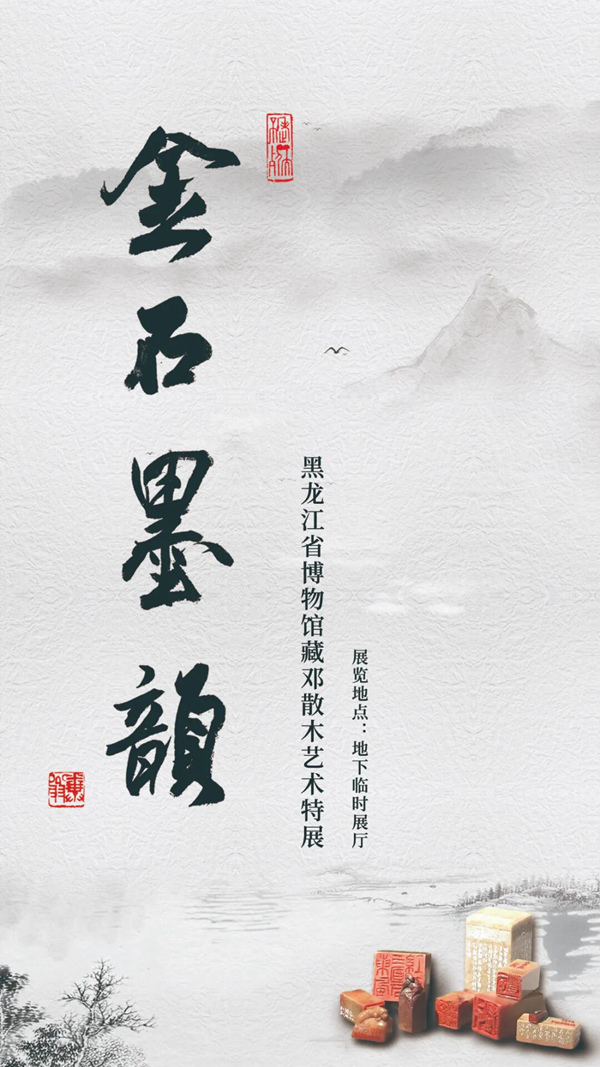 金石墨韻
黑龙江省博物馆藏邓散木艺术特展
展览地点：地下临时展厅